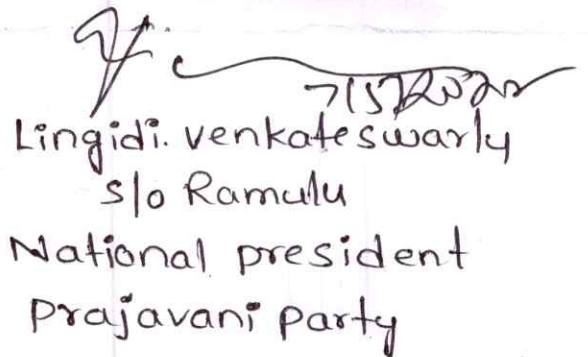 Lingidi. venkateswarly
s/o Ramulu
National president
prajavani party